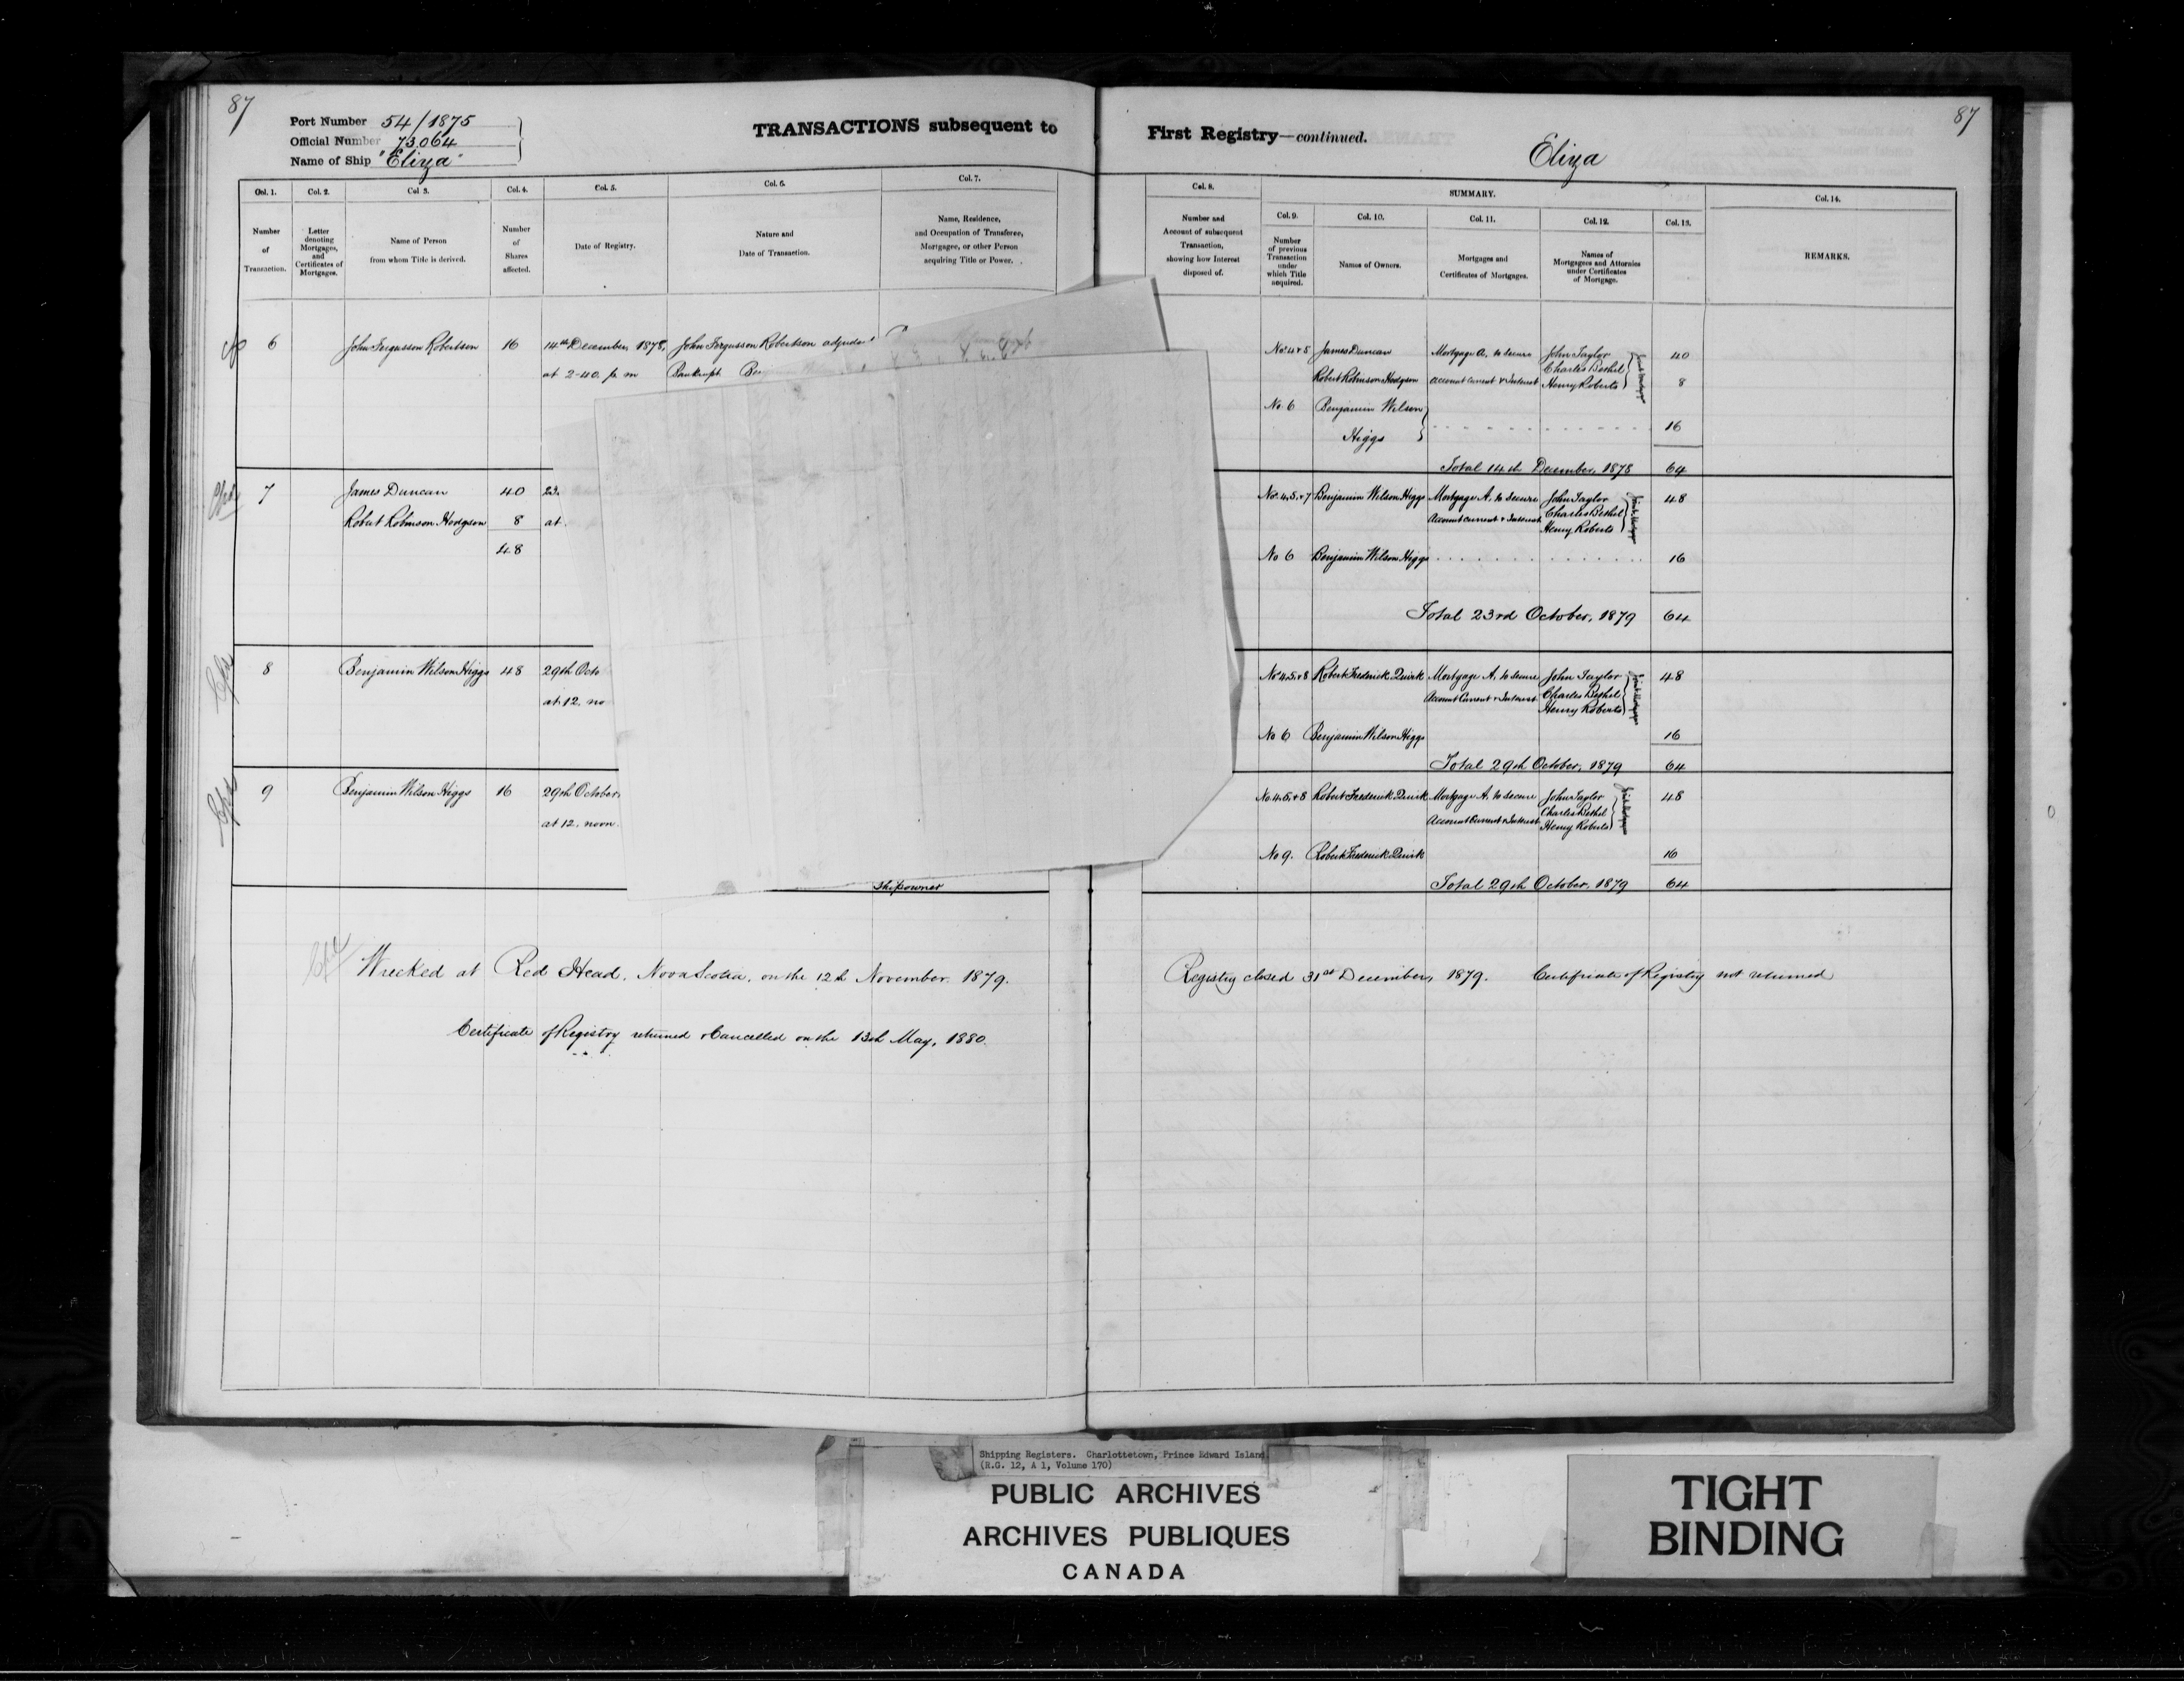 87
Port Number 54/1875
Official Number 73064
Name of Ship "Eliza"
TRANSACTIONS subsequent to
Col. 1. Col. 2. Col 3. Col. 4. Col. 5. Col. 6. Col. 7.
Number of Transaction.
Letter denoting Mortgages, and Certificates of Mortgages.
Name of Person from whom Title is derived.
Number of Shares affected.
Date of Registry.
Nature and Date of Transaction.
Name, Residence, and Occupation of Transferee, Mortgagee, or other Person acquiring Title or Power.
6 John Fergusson Robertson 16 14th December, 1878, John Fergusson Robertson
at 2-40. p. m Bankrupt
7 James Duncan 40 23.
Robert Robinson Hodgson 8 at
48
8 Benjamin Wilson Higgs 48 29th Octo
at 12. no
9 Benjamin Wilson Higgs 16 29th October,
at 12. noon.
Shipowner
Wrecked at Red Head, Nova Scotia, on the 12th November 1879.
Certificate of Registry returned & Cancelled on the 13th May, 1880.
87
First Registry—continued.
Eliza
Col. 8. SUMMARY. Col. 14.
Col. 9. Col. 10. Col. 11. Col. 12. Col. 13.
Number and Account of subsequent Transaction, showing how Interest disposed of.
Number of previous Transaction under which Title acquired.
Names of Owners.
Mortgages and Certificates of Mortgages.
Names of Mortgagees and Attornies under Certificates of Mortgage.
REMARKS.
No. 4 & 5 James Duncan Mortgage A. to secure John Taylor 40
Charles Bethel
Robert Robinson Hodgson account current & Interest Henry Roberts 8
No. 6 Benjamin Wilson
Higgs 16
Total 14th December, 1878 64
No. 4, 5, & 7 Benjamin Wilson Higgs Mortgage A. to secure John Taylor 48
Account current & Interest Charles Bethel
Henry Roberts
No 6 Benjamin Wilson Higgs 16
Total 23rd October, 1879 64
No. 4, 5, & 8 Robert Frederick Quirk Mortgage A. to secure John Taylor 48
Account Current & Interest Charles Bethel
Henry Roberts
No 6 Benjamin Wilson Higgs 16
Total 29th October, 1879 64
No. 4, 5, & 8 Robert Frederick Quirk Mortgage A. to secure John Taylor 48
Account Current & Interest Charles Bethel
Henry Roberts
No 9. Robert Frederick Quirk 16
Total 29th October, 1879 64
Registry closed 31st December, 1879. Certificate of Registry not returned
Shipping Registers. Charlottetown, Prince Edward Island.
(R.G. 12, A 1, Volume 170)
PUBLIC ARCHIVES
ARCHIVES PUBLIQUES
CANADA
TIGHT
BINDING